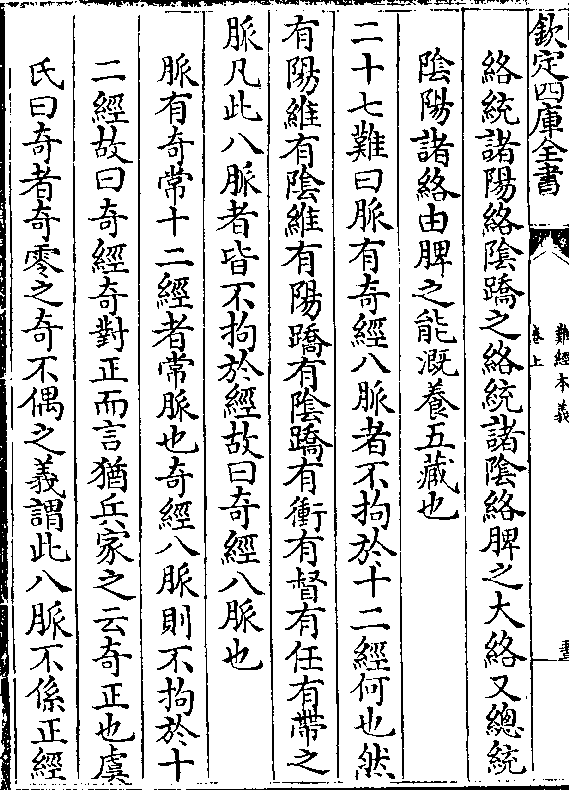 欽定四庫全書
難經本義
卷上
絡統諸陽絡陰蹻之絡統諸陰絡脾之大絡又總統
陰陽諸絡由脾之能溉養五藏也
二十七難曰脈有奇經八脈者不拘於十二經何也然
有陽維有陰維有陽蹻有陰蹻有衝有督有任有帶之
脈凡此八脈者皆不拘於經故曰奇經八脈也
脈有奇常十二經者常脈也奇經八脈則不拘於十
二經故曰奇經奇對正而言猶兵家之云奇正也虞
氏曰奇者奇零之奇不偶之義謂此八脈不係正經